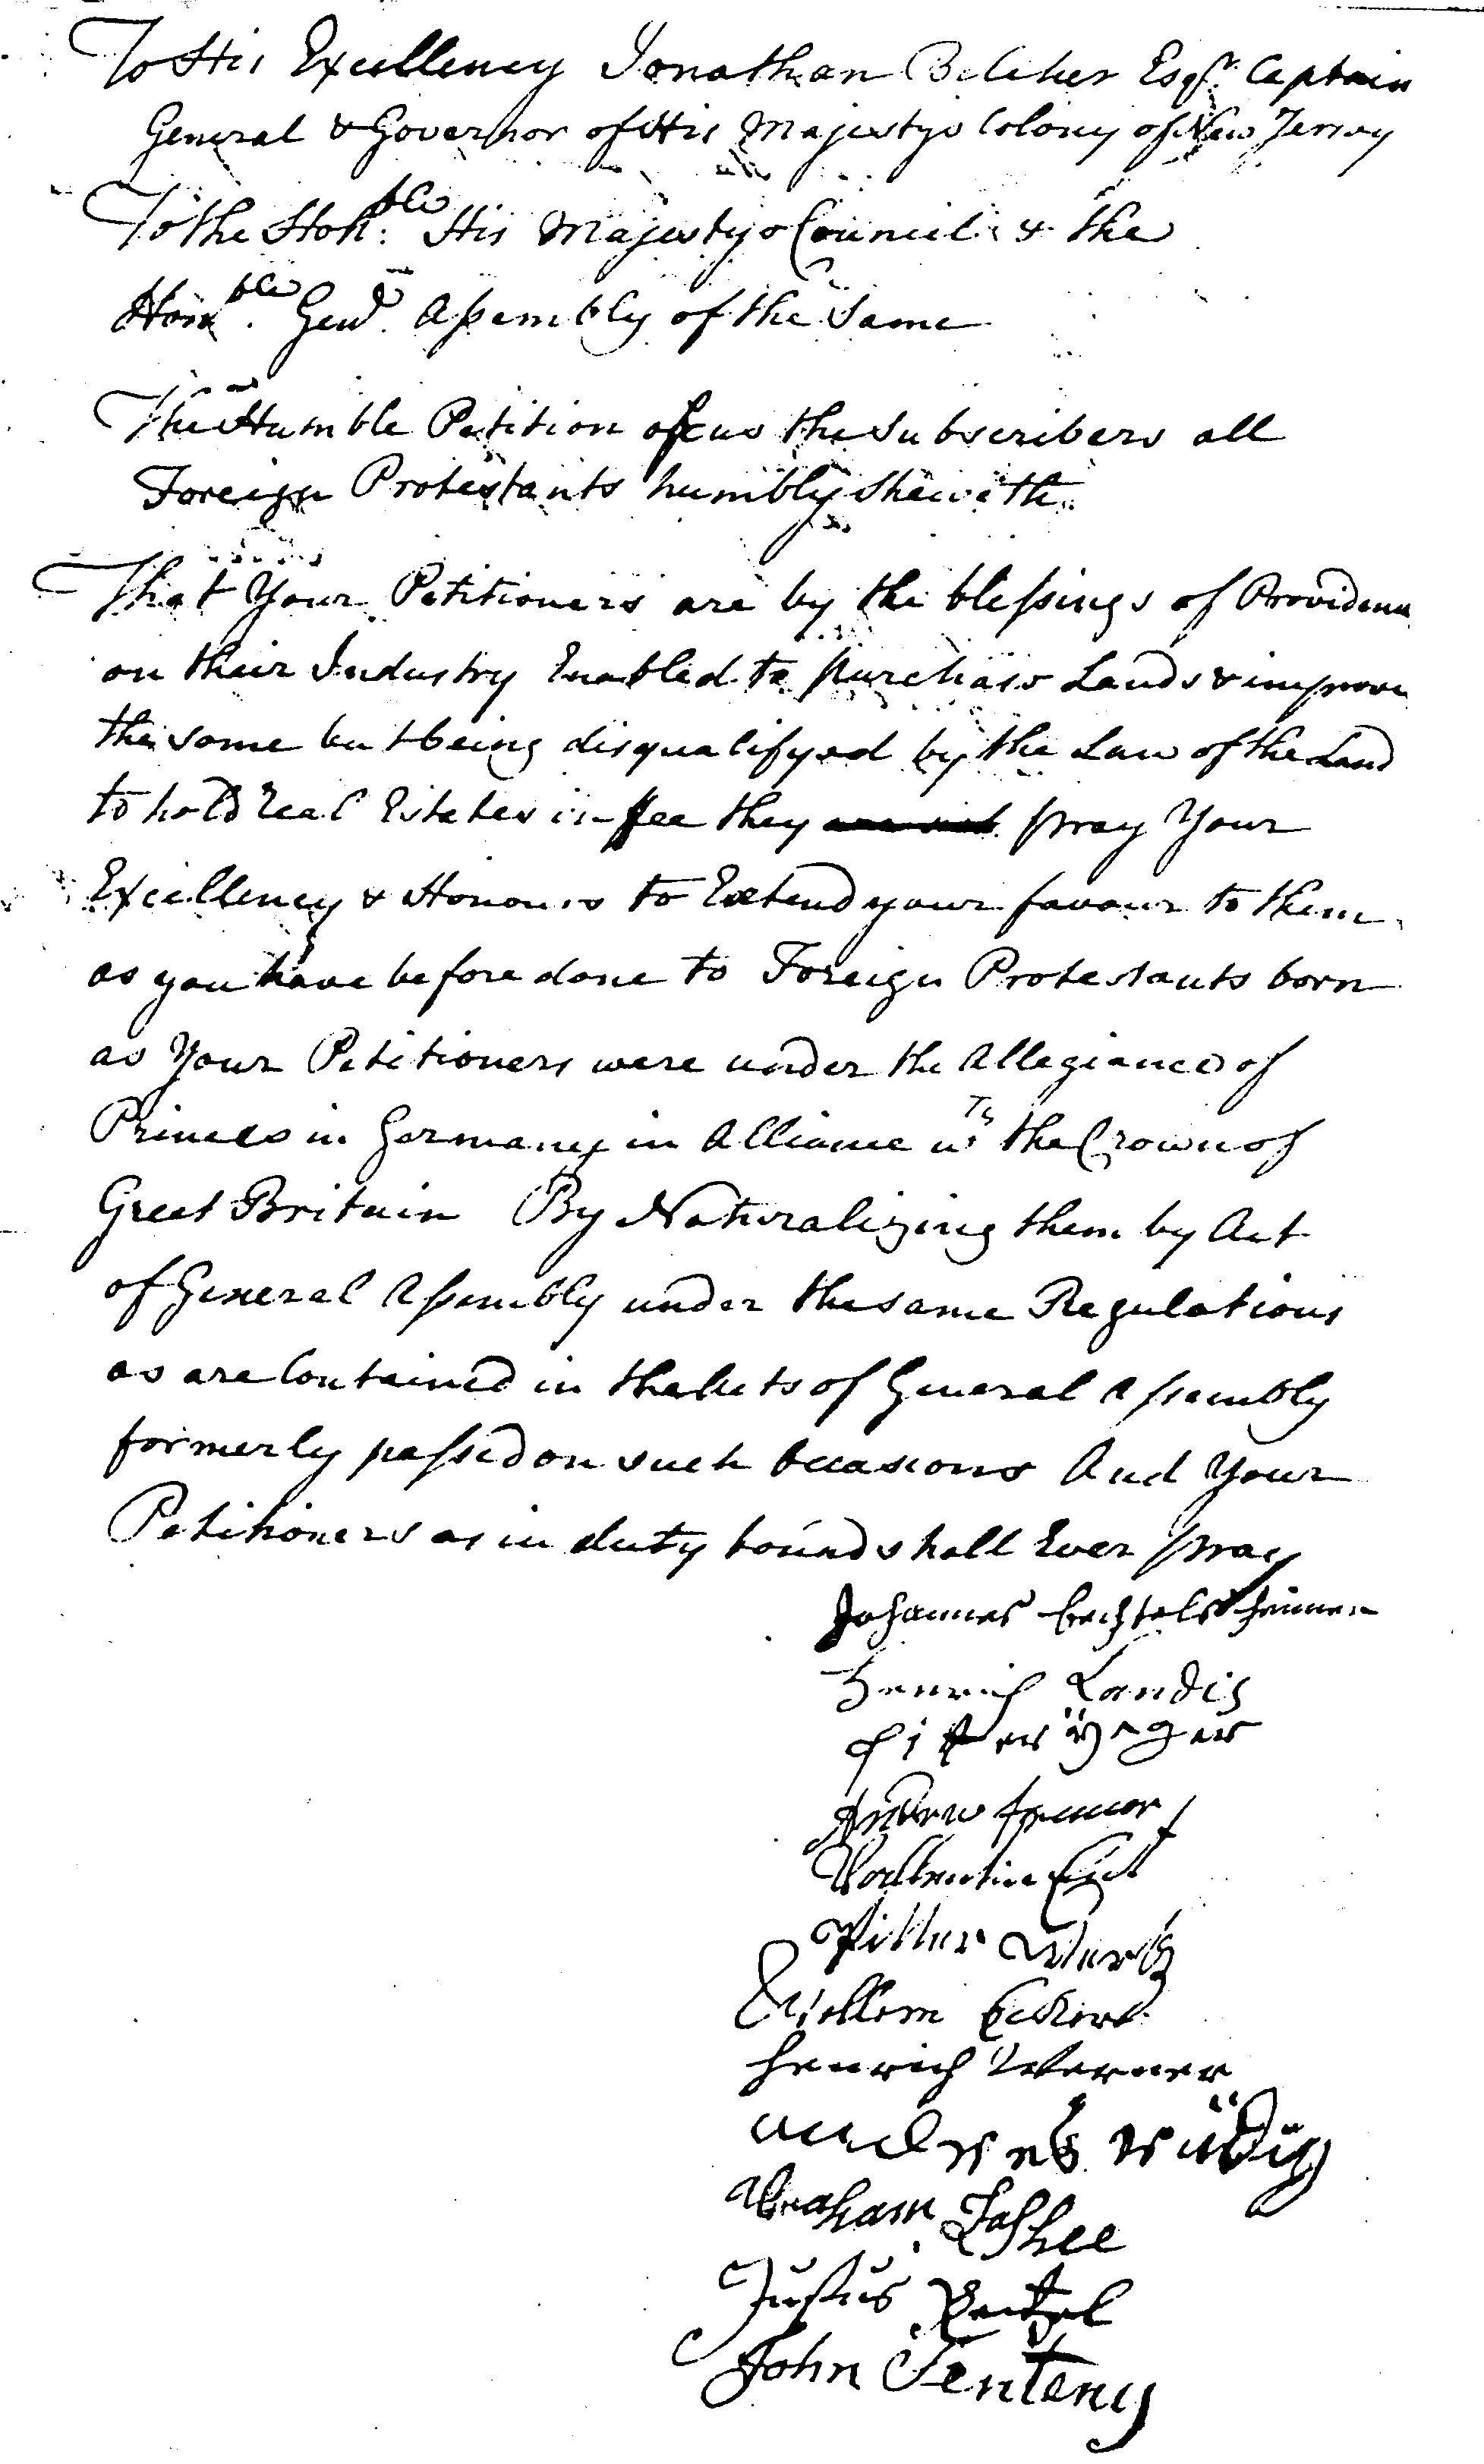 To His Excellency Jonathan Belcher Esqr. Captain
General & Governor of His Majestys Colony of New Jersey
To the Honble: His Majestys Council & the
Honble. Genl. Assembly of the Same
The Humble Petition of us the Subscribers all
Foreign Protestants humbly Sheweth
That Your Petitioners are by the blessings of Providence
on their Industry Enabled to purchase Lands & improve
the same but being disqualifyed by the Law of the Land
to hold real Estates in fee they pray Your
Excellency & Honours to Extend your favour to them
as you have before done to Foreign Protestants born
as Your Petitioners were under the Allegiance of
Princes in Germany in Alliance wth the Crown of
Great Britain By Naturalizing them by Act
of General Assembly under the same Regulations
as are Contained in the Acts of General Assembly
formerly passed on such Occasions And Your
Petitioners as in duty bound shall Ever pray
Johannes Bechtelsheimer
Henrich Landis
Piter Yager
Andrew
Vallentin
Pitter Wertz
Willem Eckert
Henrich Werner
andres
Abraham Lashee
Justus
John Tenteny